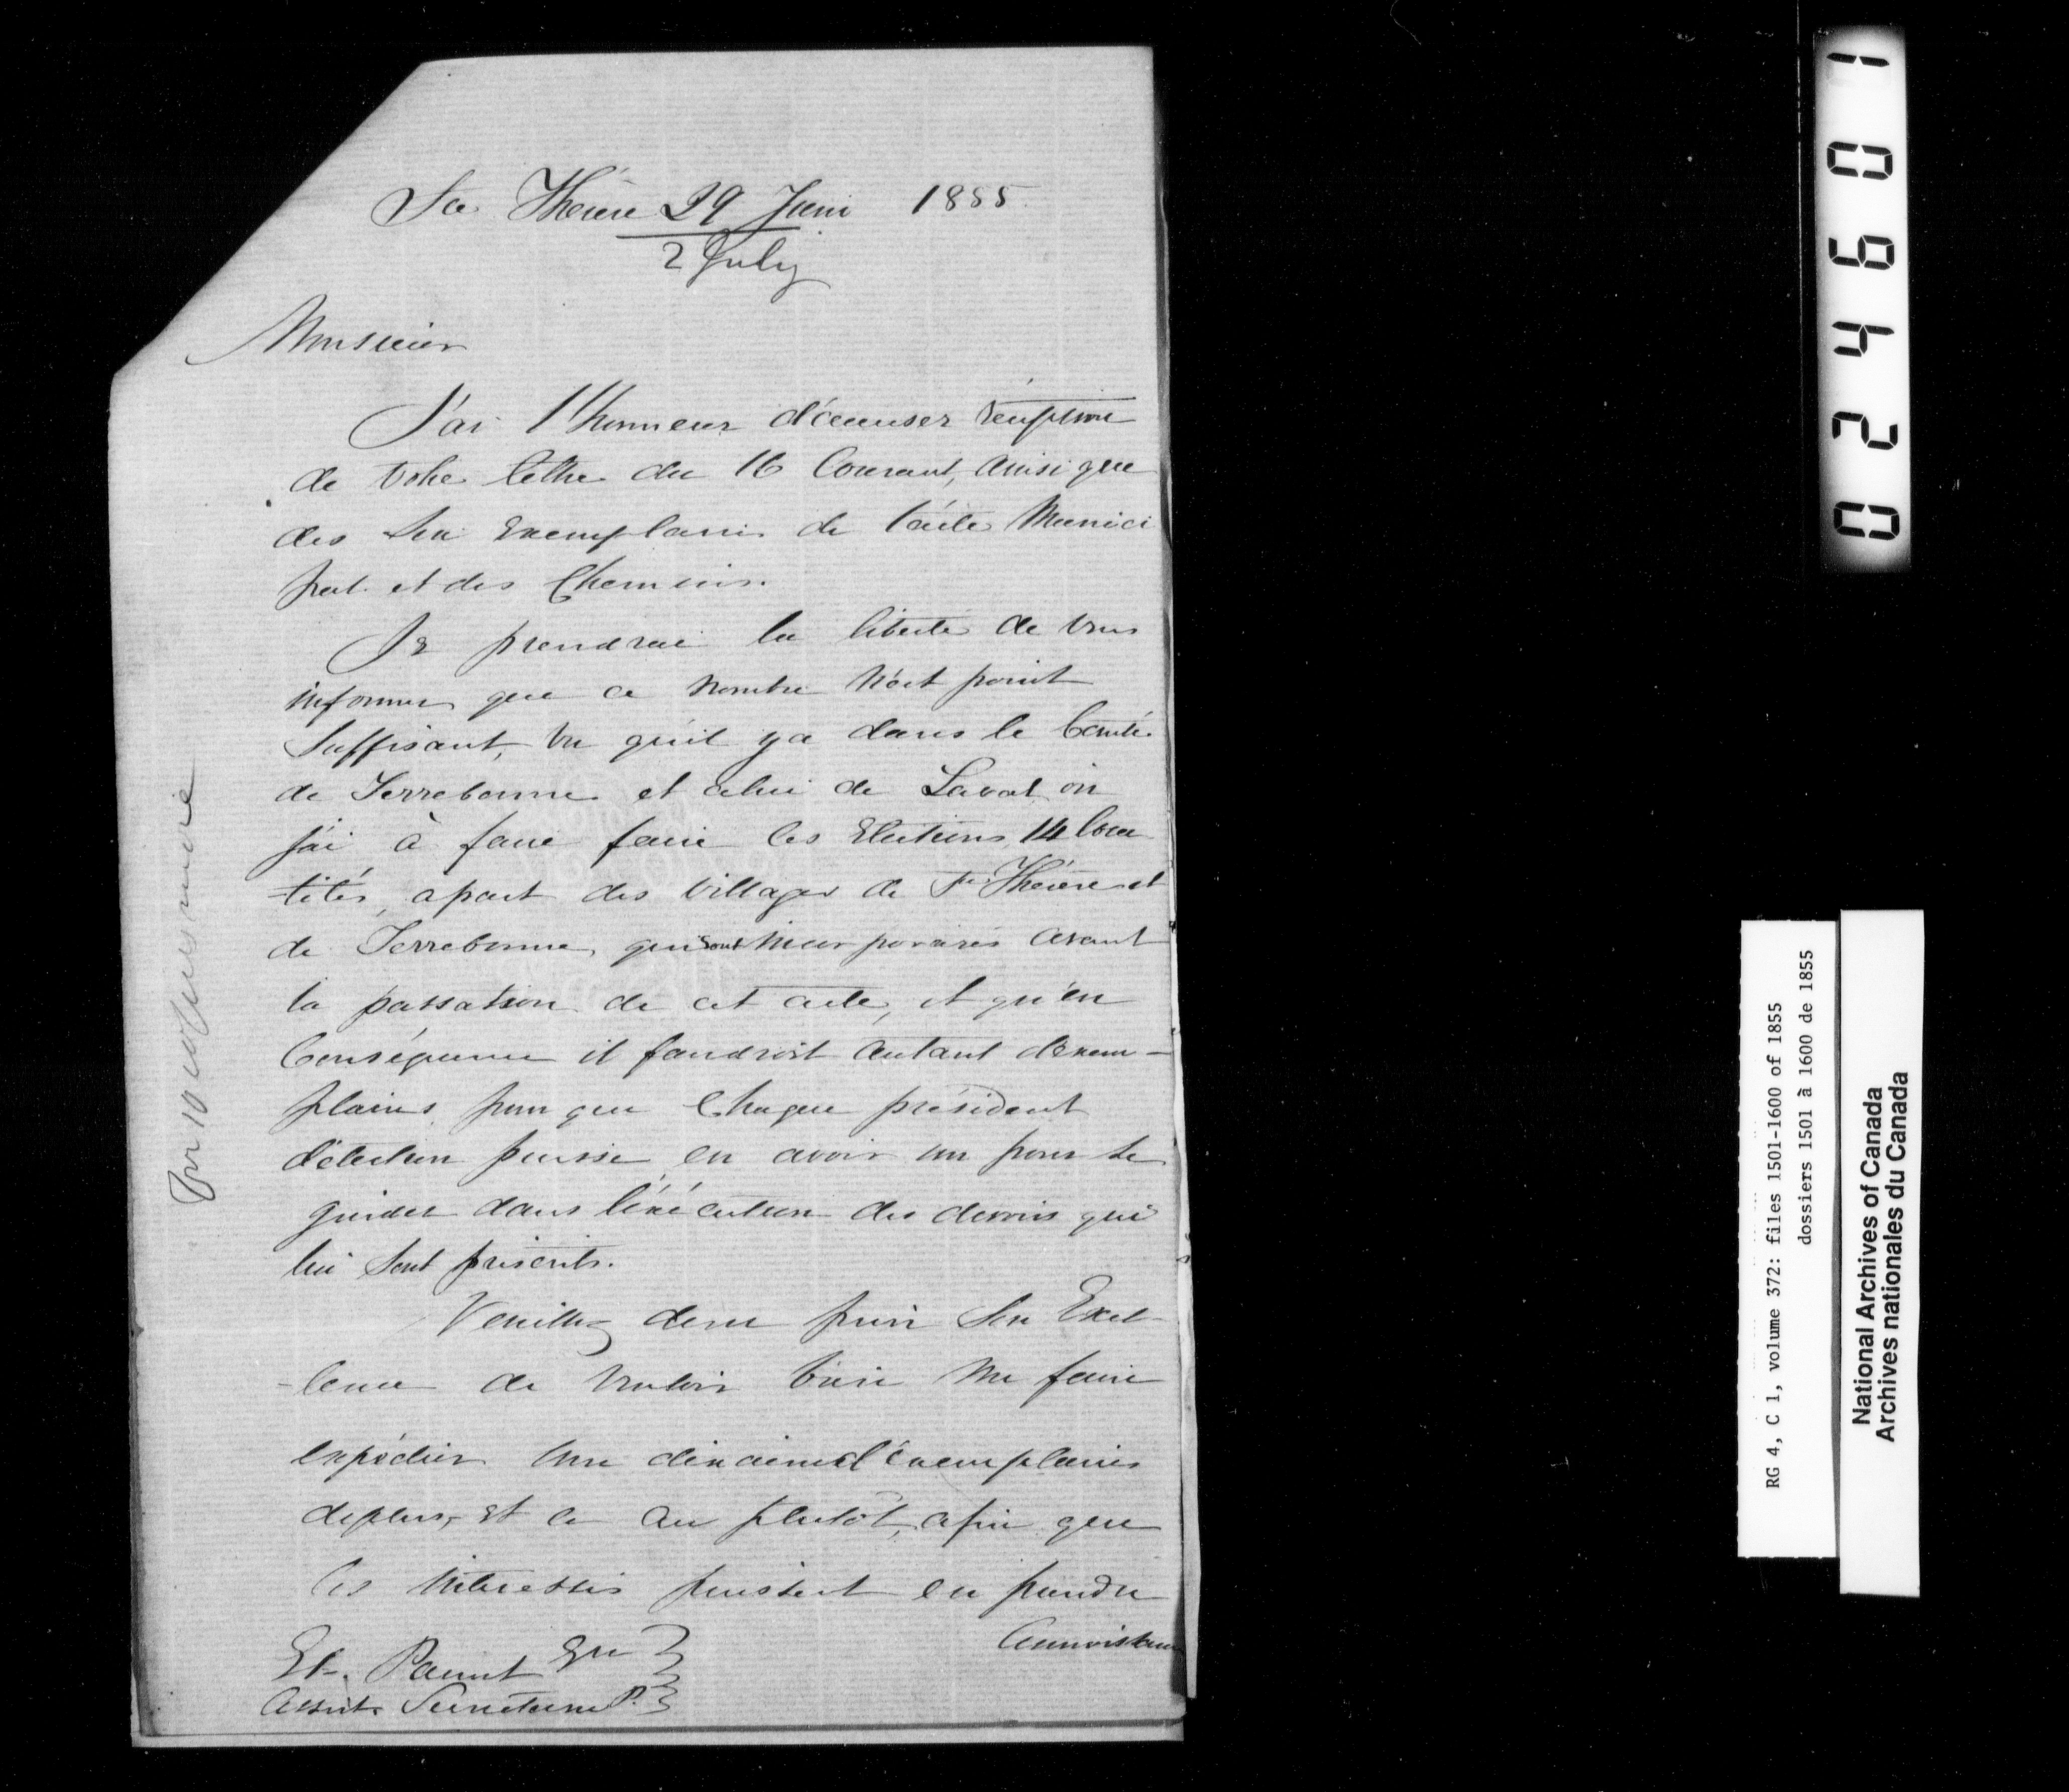 Ste Thérèse 29 Juin 1855
2 July
Monsieur
J'ai l'honneur d'accuser réception
de votre lettre du 16 Courant, ainsi que
des six Exemplaires de l'acte Munici
pal et des Chemins.
Je prendrai la liberté de vous
informer que ce nombre n'est point
suffisant, vu qu'il y a dans le Comté
de Terrebonne et celui de Laval où
j'ai à faire faire les Elections 14 loca
lités, apart des villages de Ste Thérèse et
de Terrebonne, qui sont incorporés avant
la passation de cet acte, et qu'en
Conséquence il faudroit autant d'exem-
plaires pour que Chaque président
d'élection puisse en avoir un pour se
guider dans l'éxécution des devoirs qui
lui sont préscrits.
Veuillez donc prier Son Excel
-lence de vouloir bien me faire
expédier une dixaine d'éxemplaires
deplus, et ce au plutôt, afin que
les intéressés puissent en prendre
Connoissance
Et. Parent Ecr
Assist. Secrétaire P.
For 10 copies more
024601
RG 4, C 1, volume 372: files 1501-1600 of 1855
dossiers 1501 à 1600 de 1855
National Archives of Canada
Archives nationales du Canada